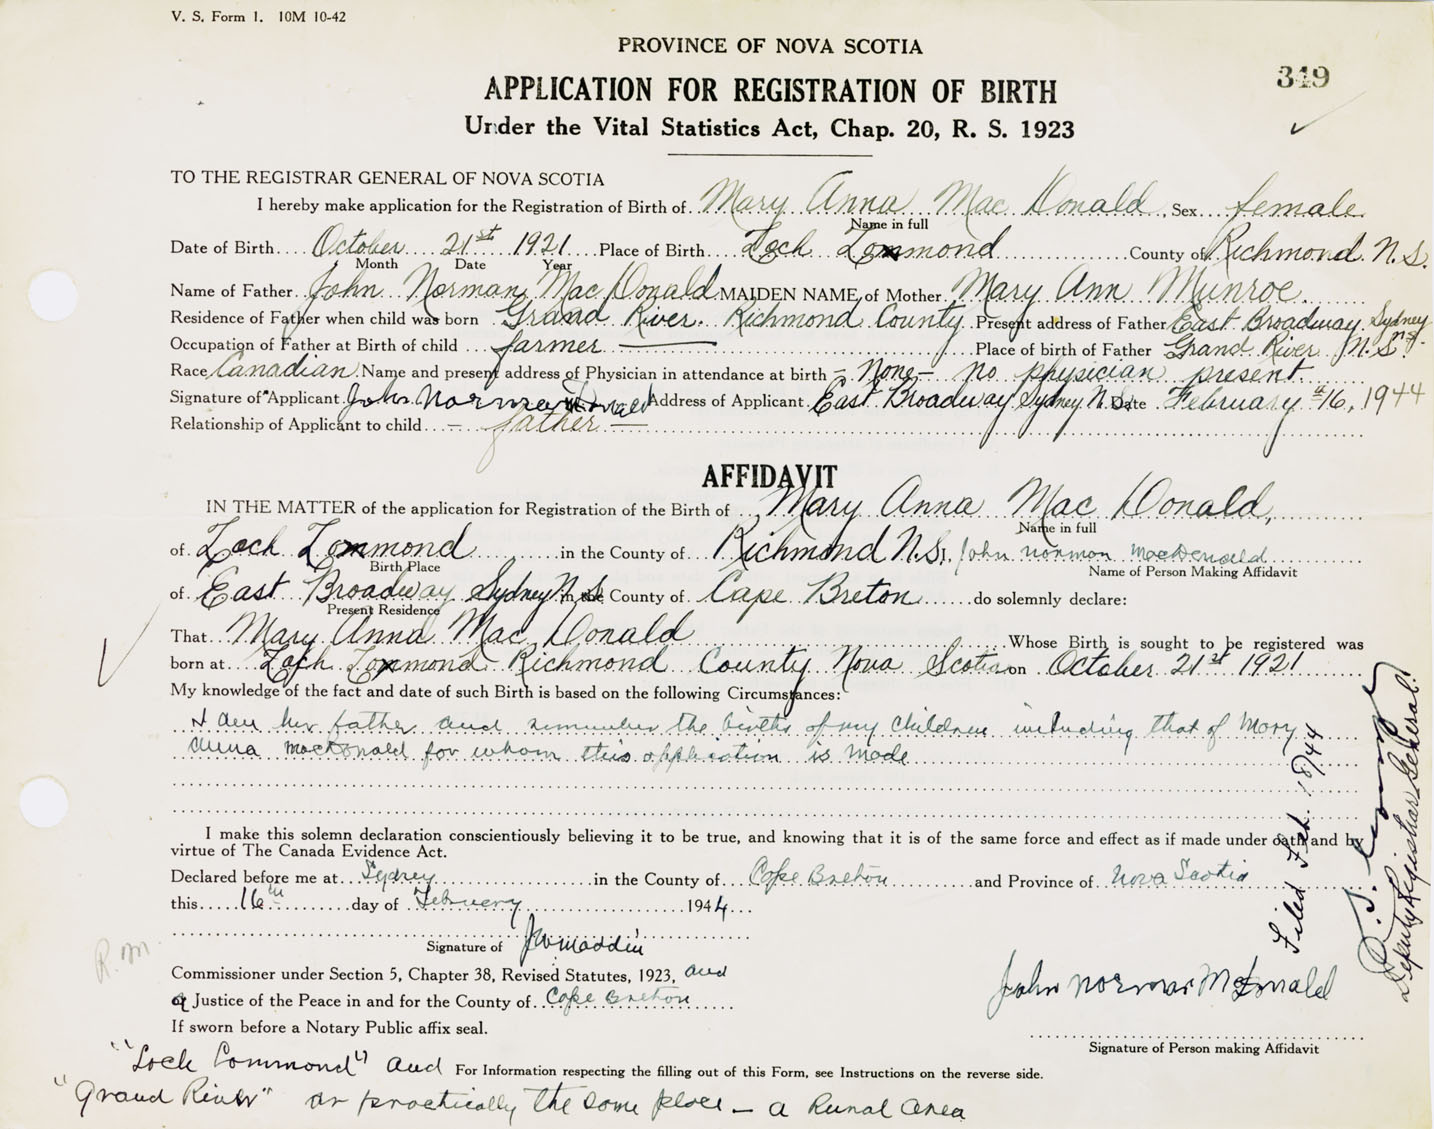 V. S. Form 1. 10M 10-42
PROVINCE OF NOVA SCOTIA
349
APPLICATION FOR REGISTRATION OF BIRTH
Under the Vital Statistics Act, Chap. 20, R. S. 1923
TO THE REGISTRAR GENERAL OF NOVA SCOTIA
I hereby make application for the Registration of Birth of Mary Anna Mac Donald Sex female
Name in full
Date of Birth October 21st 1921 Place of Birth Loch Lommond County of Richmond N.S.
Month Date Year
Name of Father John Norman Mac Donald MAIDEN NAME of Mother Mary Ann Munroe
Residence of Father when child was born Grand River Richmond County Present address of Father East Broadway Sydney N.S.
Occupation of Father at Birth of child farmer Place of birth of Father Grand River N.S.
Race Canadian Name and present address of Physician in attendance at birth - None - no physician present
Signature of Applicant John Norman Address of Applicant East Broadway Sydney N.S. Date February 16, 1944
Relationship of Applicant to child - father -
AFFIDAVIT
IN THE MATTER of the application for Registration of the Birth of Mary Anna Mac Donald,
Name in full
of Loch Lommond in the County of Richmond N.S., John Norman MacDonald
Birth Place Name of Person Making Affidavit
of East Broadway Sydney N.S. in the County of Cape Breton do solemnly declare:
Present Residence
That Mary Anna Mac Donald Whose Birth is sought to be registered was
born at Loch Lommond Richmond County Nova Scotia on October 21st 1921
My knowledge of the fact and date of such Birth is based on the following Circumstances:
I am her father and remember the births of my children including that of Mary
Anna MacDonald for whom this application is made
I make this solemn declaration conscientiously believing it to be true, and knowing that it is of the same force and effect as if made under oath and by
virtue of The Canada Evidence Act.
Declared before me at Sydney in the County of Cape Breton and Province of Nova Scotia
this 16th day of February 1944
Signature of J W Maddin
Commissioner under Section 5, Chapter 38, Revised Statutes, 1923, and
a Justice of the Peace in and for the County of Cape Breton
If sworn before a Notary Public affix seal.
John Norman McDonald
Signature of Person making Affidavit
R.M.
"Loch Lommond" and
For Information respecting the filling out of this Form, see Instructions on the reverse side.
"Grand River" are practically the same place - a Rural area
Filed Feb. 18/44
Deputy Registrar General